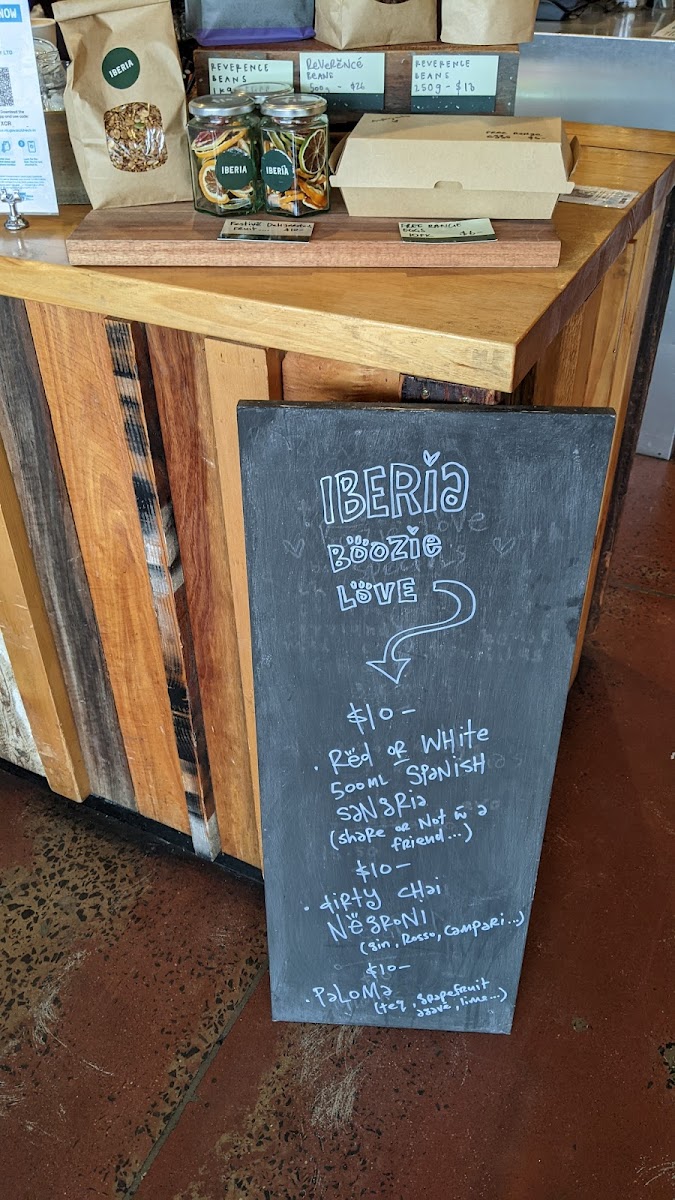 NOW
IBERIA
REVERENCE
BEANS
1kg
REVERENCE
BEANS
500g - $26
REVERENCE
BEANS
250g - $18
IBERIA
IBERIA
FREE RANGE
FESTIVE DEHYDRATED
FRUIT ...... $10-
FREE RANGE
EGGS
$6-
IBERIA
BOOZIE
LOVE
$10-
. RED OR WHITE
500ML SPANISH
SANGRIA
(share or Not w a
friend...)
$10-
. dirty chai
NEGRONI
(gin, Rosso, campari...)
$10-
. PALOMA
(teq, grapefruit
agave, lime...)